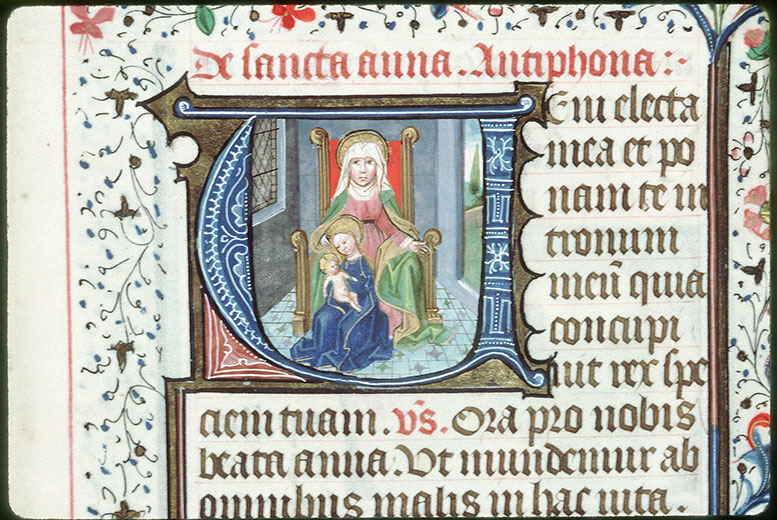 De sancta anna. Antiphona:·
VEni electa
mea et po
nam te in
tronum
meū quia
concupi
uit rex spe
ciem tuam. v̄s. Ora pro nobis
beata anna. Vt mundemur ab
omnibus malis in hac uita.